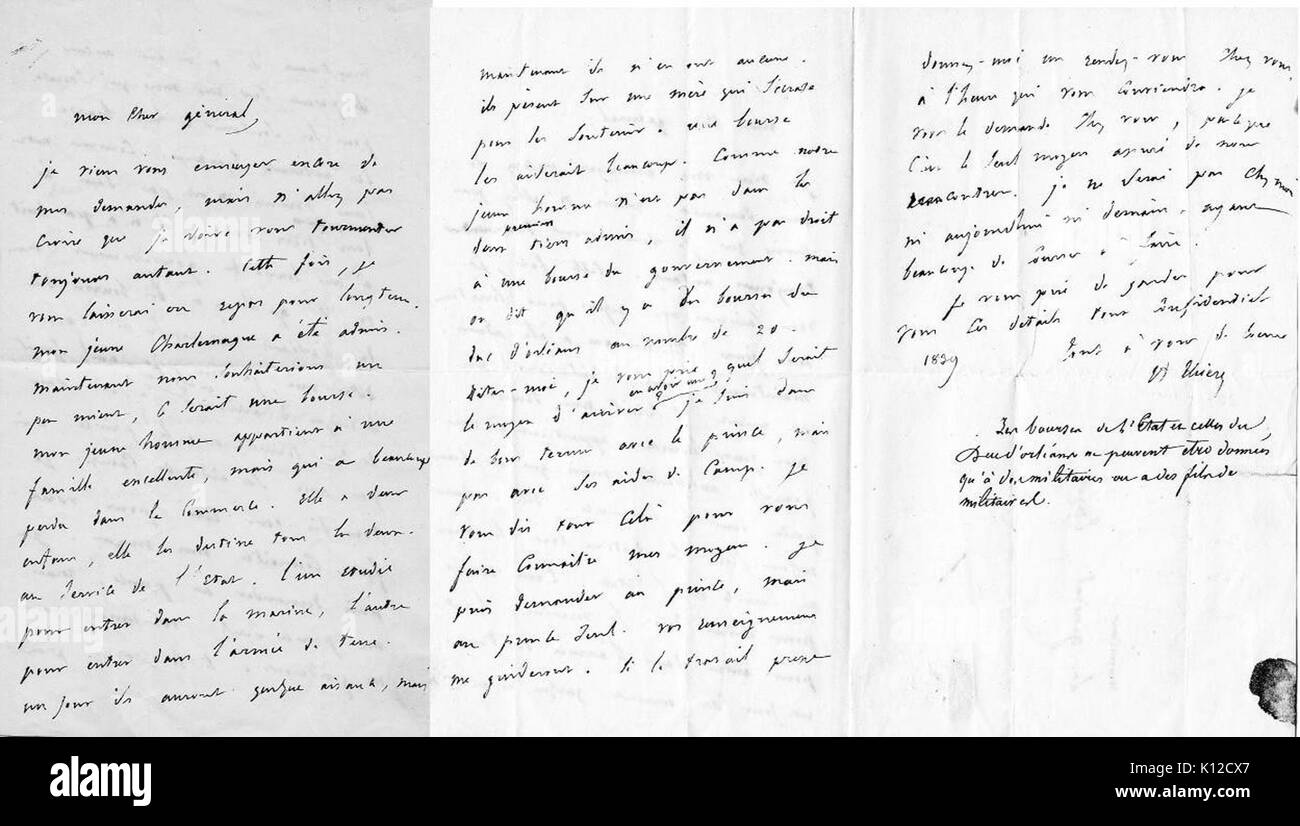 mon cher général,
je viens vous ennuyer encore de
mes demandes, mais n'allez pas
croire que je doive vous tourmenter
toujours autant. Cette fois, je
vous laisserai en repos pour longtems.
mon jeune Charlemagne a été admis.
maintenant nous souhaiterions un
peu mieux, ce serait une bourse.
mon jeune homme appartient à une
famille excellente, mais qui a beaucoup
perdu dans le commerce. elle a deux
enfans, elle les destine tous les deux
au service de l'Etat. l'un étudie
pour entrer dans la marine, l'autre
pour entrer dans l'armée de terre.
un jour ils auront quelque aisance, mais
maintenant ils n'en ont aucune.
ils pèsent sur une mère qui s'écrase
pour les soutenir. une bourse
les aiderait beaucoup. Comme notre
jeune homme n'est pas dans les
premiers
deux tiers admis, il n'a pas droit
à une bourse du gouvernement. mais
on dit qu'il y a des bourses du
duc d'orléans au nombre de 20.
dites-moi, je vous prie, quel serait
le moyen d'arriver à en avoir une. je suis dans
de bons termes avec le prince, mais
pas avec ses aides de camp. je
vous dis tout cela pour vous
faire connaître mes moyens. je
puis demander au prince, mais
au prince seul. vos renseignemens
me guideront. si le travail presse
donnez-moi un rendez-vous chez vous
à l'heure qui vous conviendra. je
vous le demande chez vous, parceque
c'est le seul moyen assuré de nous
rencontrer. je ne serai pas chez moi
ni aujourdhui ni demain, ayant
beaucoup de courses à faire.
Je vous prie de garder pour
vous ces details tout confidentiels
tout à vous de coeur
1839
A Thiers
Les bourses de l'Etat et celles du
Duc d'orléans ne peuvent etre données
qu'à des militaires ou a des fils de
militaires.
alamy
Image ID: K12CX7
www.alamy.com